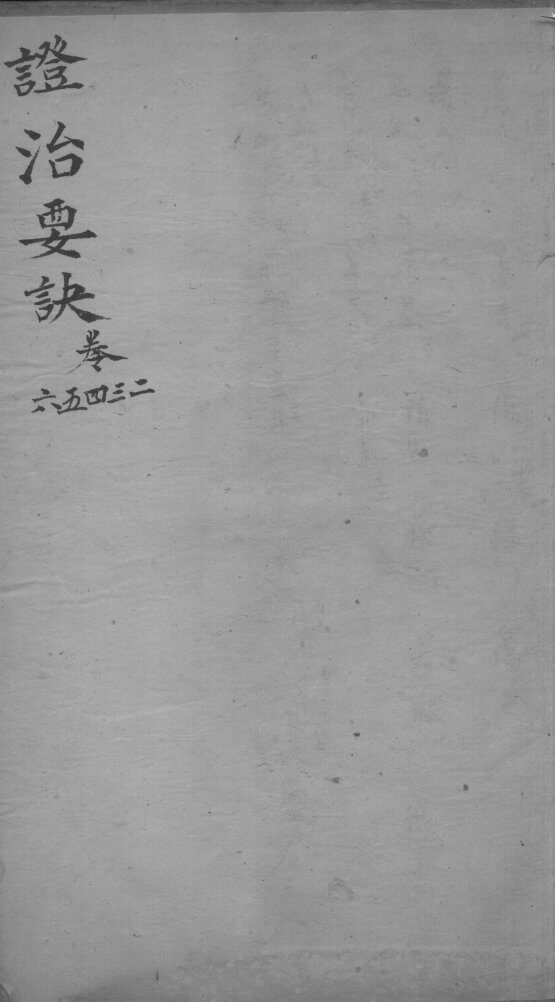 證治要訣
卷
二三四五六